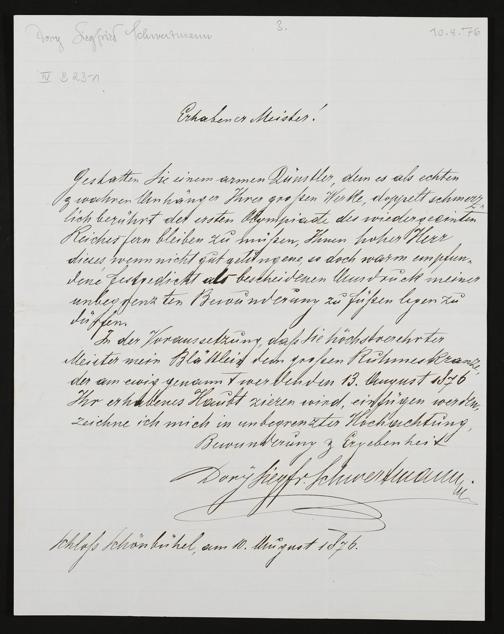 Dory Siegfried Schwertmann
3.
10.4.76
IV B 23-1
Erhabener Meister!
Gestatten Sie einem armen Künstler, dem es als echten
& wahren Anhänger Ihrer großen Werke, doppelt schmerz-
lich berührt der ersten Olympiade des wiedergeeinten
Reiches fern bleiben zu müßen, Ihnen hoher Herr
dieses wenn nicht gut gelungene, so doch warm empfun-
dene Festgedicht als bescheidenen Ausdruck meiner
unbegrenzten Bewunderung zu füßen legen zu
dürfen.
In der Voraussetzung, daß Sie höchstverehrter
Meister mein Blättlein dem großen Ruhmeskranze,
der am ewig genannt werdenden 13. August 1876
Ihr erhabenes Haupt zieren wird, einfügen werden,
zeichne ich mich in unbegrenzter Hochachtung,
Bewunderung & Ergebenheit
Dory Siegfr Schwertmann
Schloß Schönbühel, am 10. August 1876.